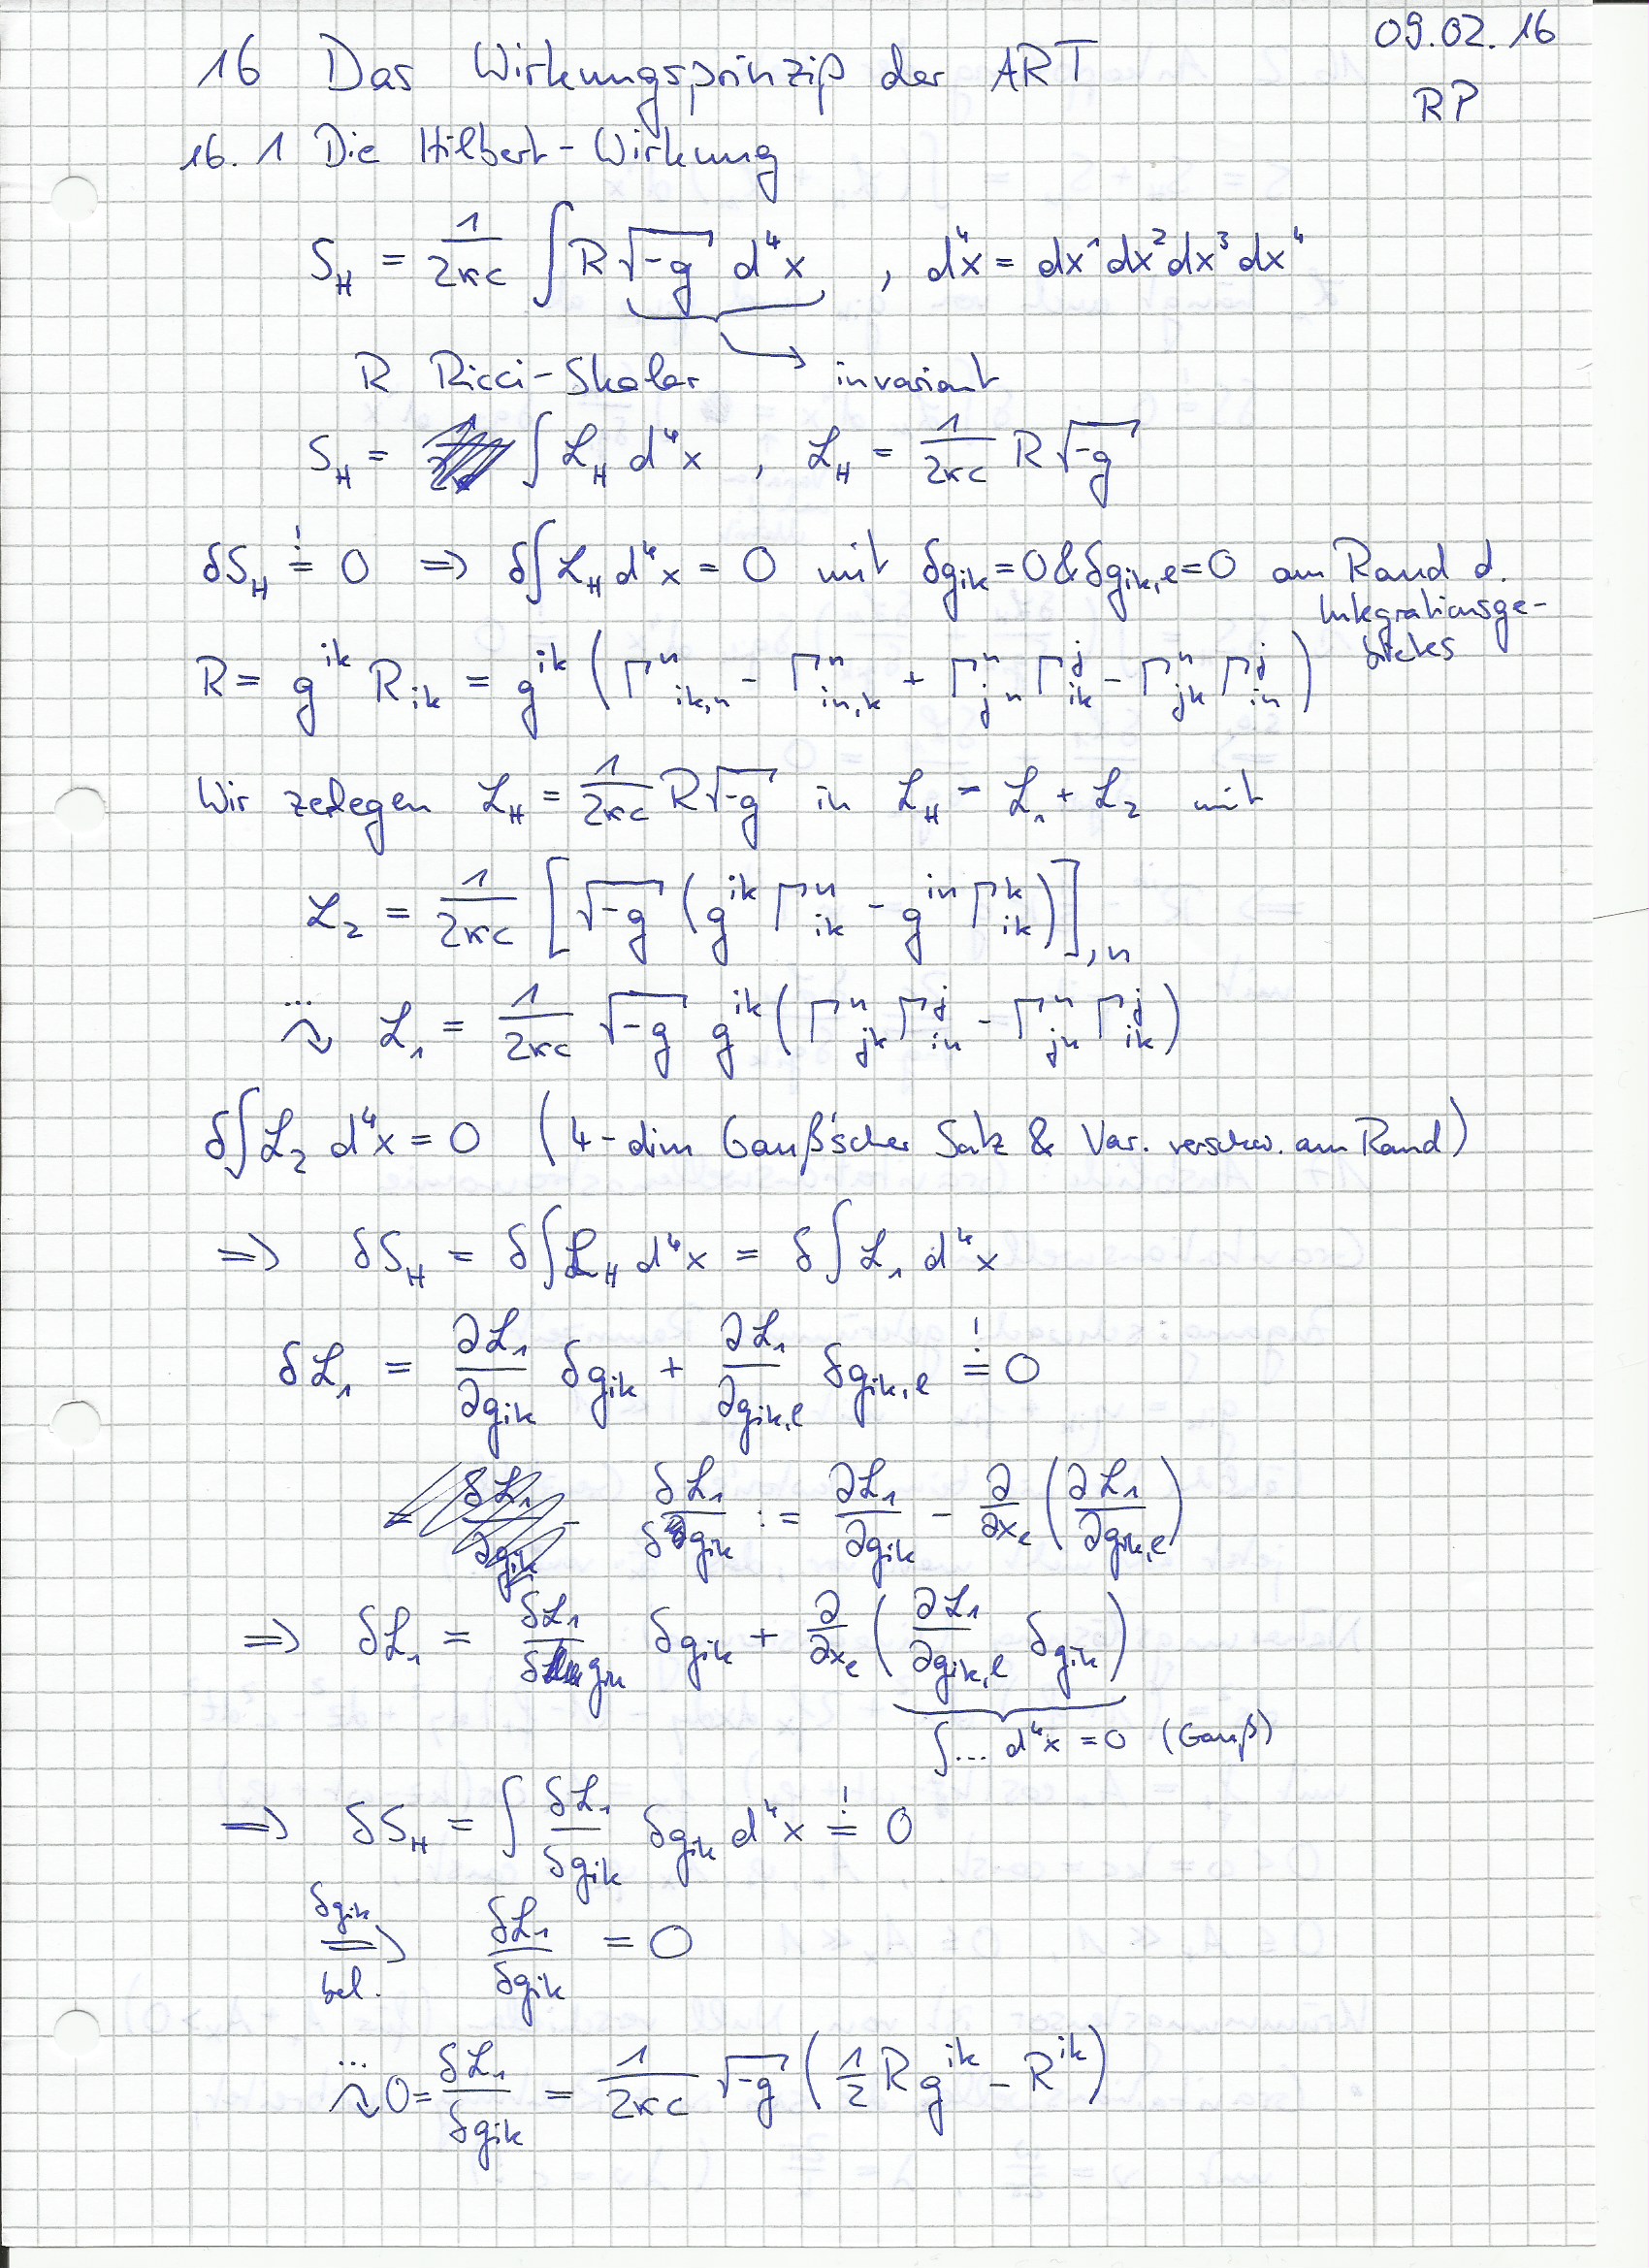 09.02.16
16 Das Wirkungsprinzip der ART
RP
16.1 Die Hilbert-Wirkung
S_H = 1/(2κc) ∫ R √-g d⁴x , d⁴x = dx¹dx²dx³dx⁴
R Ricci-Skalar → invariant
S_H = ∫ ℒ_H d⁴x , ℒ_H = 1/(2κc) R √-g
δS_H =! 0 ⇒ δ∫ ℒ_H d⁴x = 0 mit δg_ik = 0 & δg_ik,l = 0 am Rand d.
Integrationsge-
bietes
R = g^ik R_ik = g^ik (Γ^n_ik,n - Γ^n_in,k + Γ^n_jn Γ^j_ik - Γ^n_jk Γ^j_in)
Wir zerlegen ℒ_H = 1/(2κc) R √-g in ℒ_H = ℒ_1 + ℒ_2 mit
ℒ_2 = 1/(2κc) [√-g (g^ik Γ^n_ik - g^in Γ^k_ik)]_,n
... ↷ ℒ_1 = 1/(2κc) √-g g^ik (Γ^n_jk Γ^j_in - Γ^n_jn Γ^j_ik)
δ∫ ℒ_2 d⁴x = 0 (4-dim Gauß'scher Satz & Var. verschw. am Rand)
⇒ δS_H = δ∫ ℒ_H d⁴x = δ∫ ℒ_1 d⁴x
δℒ_1 = ∂ℒ_1/∂g_ik δg_ik + ∂ℒ_1/∂g_ik,l δg_ik,l =! 0
δℒ_1/δg_ik := ∂ℒ_1/∂g_ik - ∂/∂x_l (∂ℒ_1/∂g_ik,l)
⇒ δℒ_1 = δℒ_1/δg_ik δg_ik + ∂/∂x_l (∂ℒ_1/∂g_ik,l δg_ik)
∫ ... d⁴x = 0 (Gauß)
⇒ δS_H = ∫ δℒ_1/δg_ik δg_ik d⁴x =! 0
δg_ik bel. ⇒ δℒ_1/δg_ik = 0
... ↷ 0 = δℒ_1/δg_ik = 1/(2κc) √-g (1/2 R g^ik - R^ik)